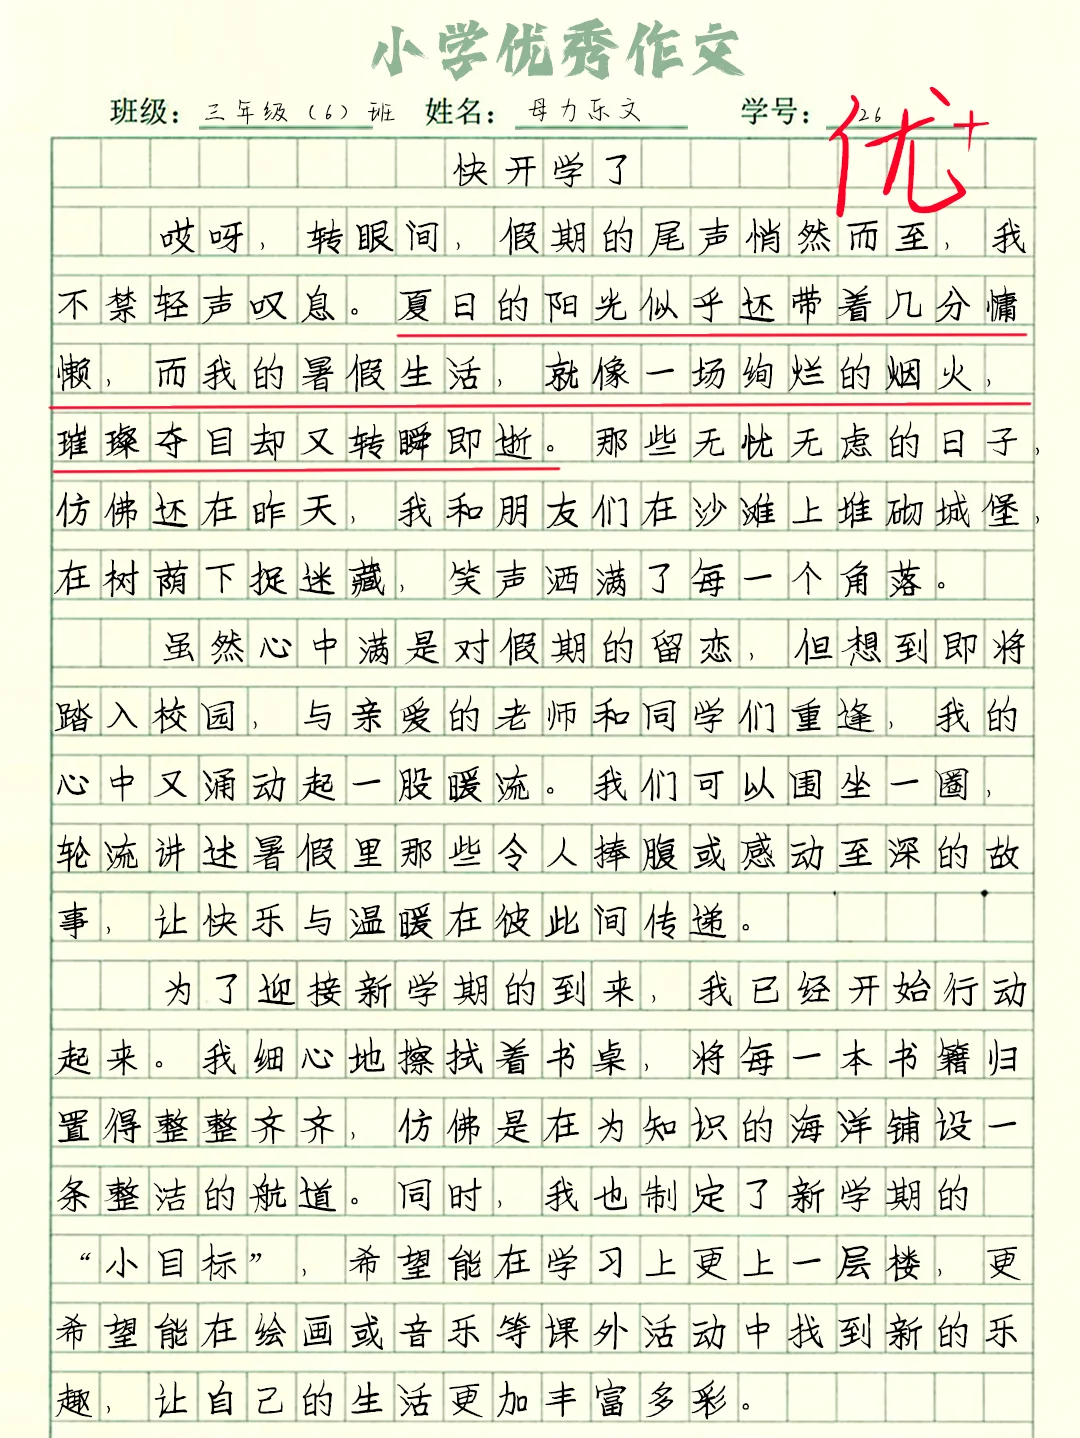 小学优秀作文
班级：三年级（6）班 姓名：母力乐文 学号：26
优+
快开学了
哎呀，转眼间，假期的尾声悄然而至，我
不禁轻声叹息。夏日的阳光似乎还带着几分慵
懒，而我的暑假生活，就像一场绚烂的烟火，
璀璨夺目却又转瞬即逝。那些无忧无虑的日子，
仿佛还在昨天，我和朋友们在沙滩上堆砌城堡，
在树荫下捉迷藏，笑声洒满了每一个角落。
虽然心中满是对假期的留恋，但想到即将
踏入校园，与亲爱的老师和同学们重逢，我的
心中又涌动起一股暖流。我们可以围坐一圈，
轮流讲述暑假里那些令人捧腹或感动至深的故
事，让快乐与温暖在彼此间传递。
为了迎接新学期的到来，我已经开始行动
起来。我细心地擦拭着书桌，将每一本书籍归
置得整整齐齐，仿佛是在为知识的海洋铺设一
条整洁的航道。同时，我也制定了新学期的
“小目标”，希望能在学习上更上一层楼，更
希望能在绘画或音乐等课外活动中找到新的乐
趣，让自己的生活更加丰富多彩。